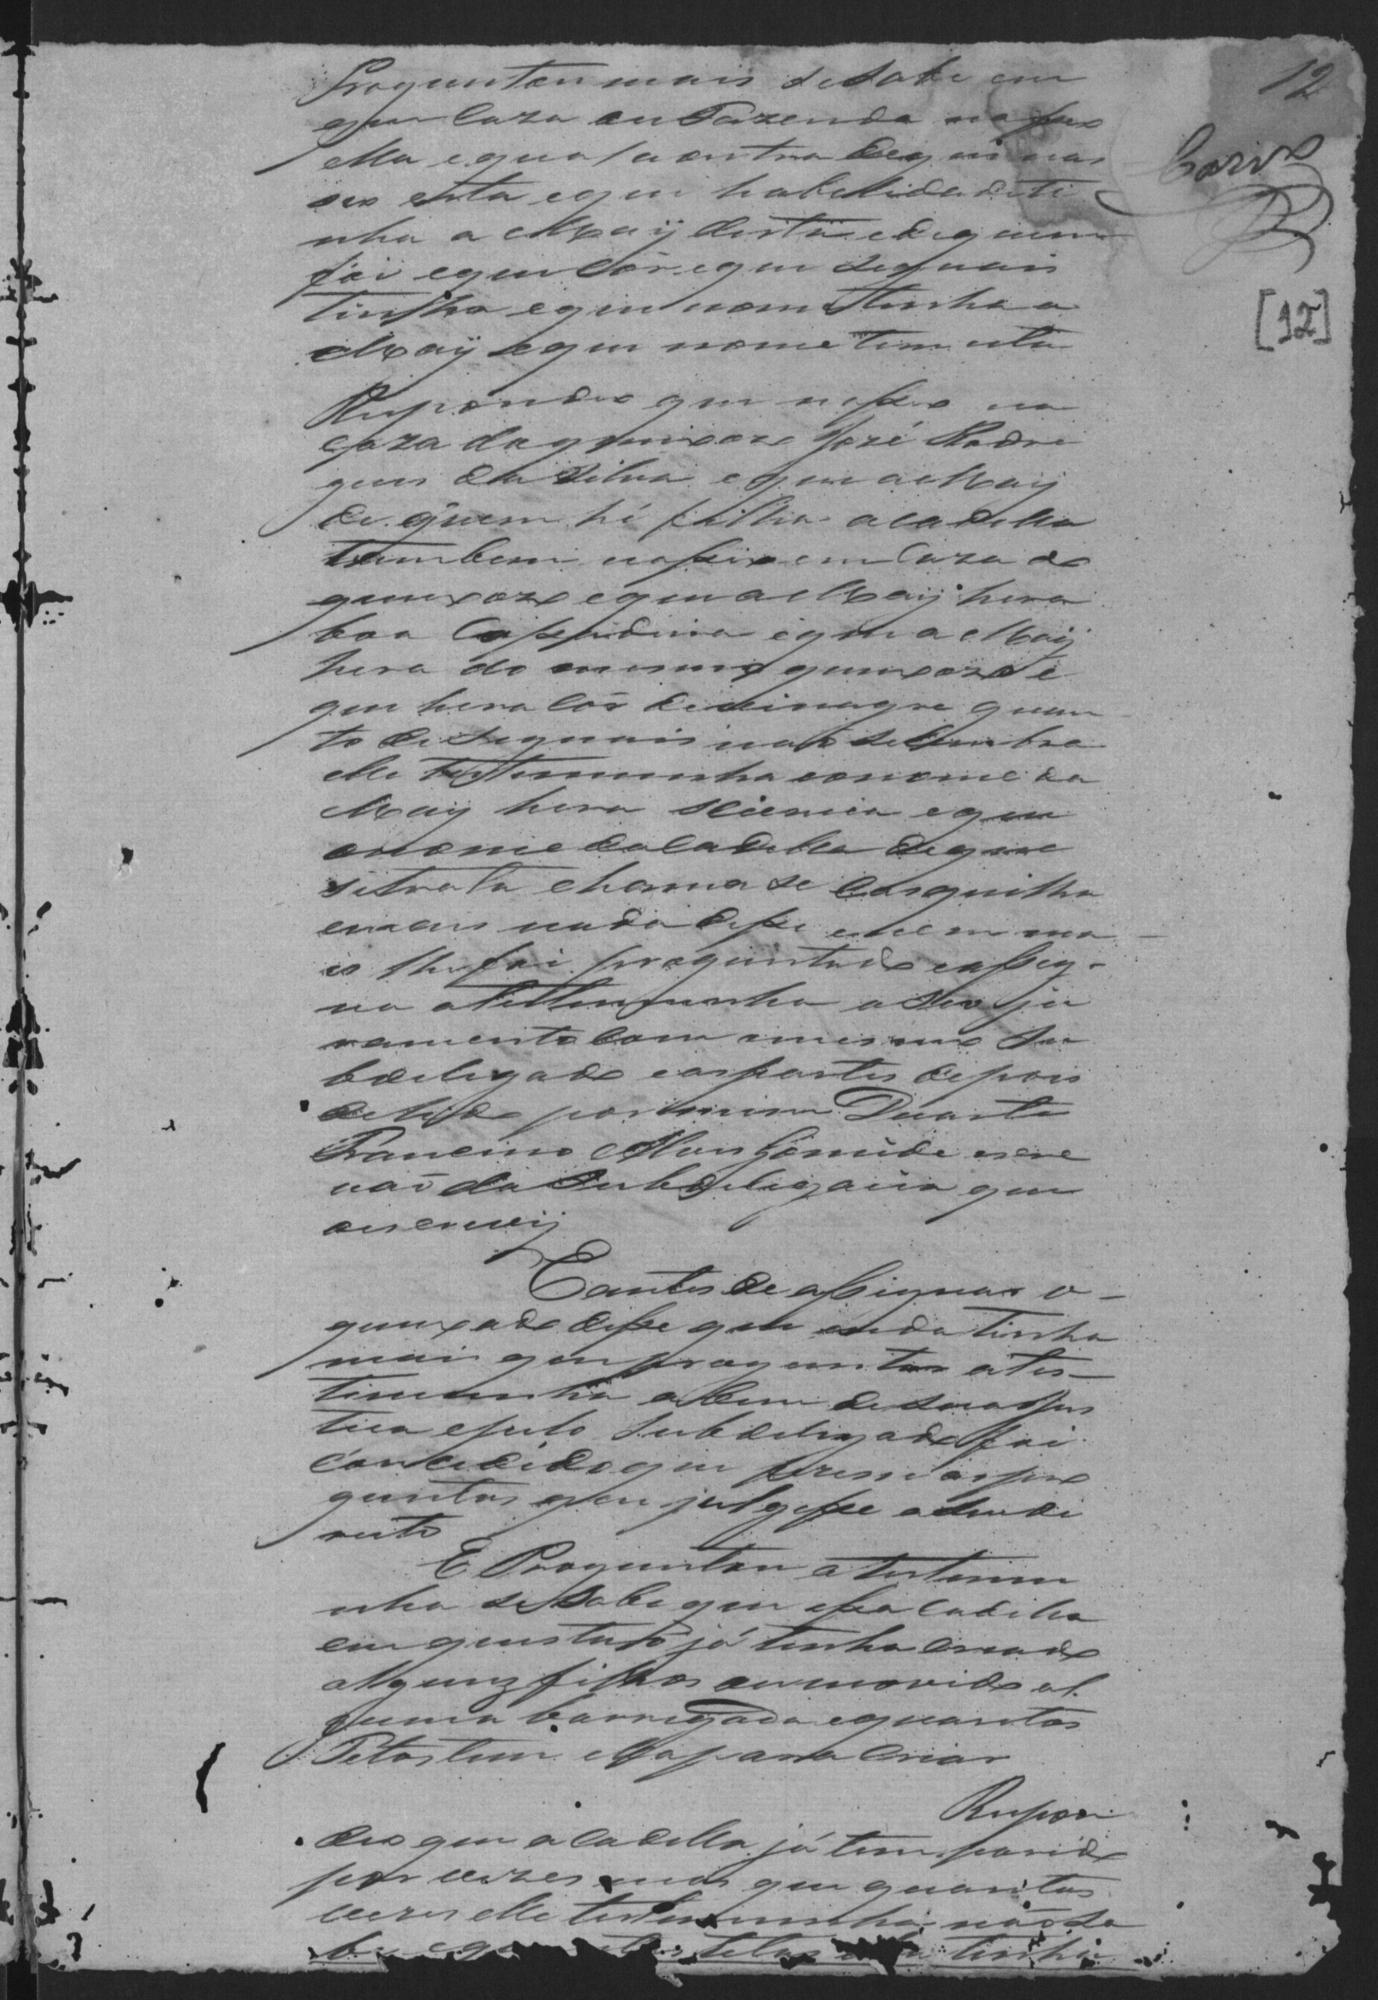 12
Carvo
[12]
Proguntou mais se sabe em
que Caza ou Fazenda nasceo
ella e qual a outra de que nas
ceo esta e que habelidade ti
nha a Maÿ desta e de quem
foi e que Côr e que signais
tinha e que nome tinha a
Maÿ e que nome tem esta
Respondeo que nasceo na
caza do queixozo José Rodri
gues da Silva e que a Maÿ
de quem hé filha a cadella
tambem nasceo em Caza do
queixozo e que a Maÿ hera
boa Cassadeira e que a Maÿ
hera do mesmo queixozo e
que hera Côr de vinagre quan
to de signais não se lembra
elle testemunha e o nome da
Maÿ hera Sciencia e que
o nome da Cadella de que
se trata chama se Casquilha
e mais nada disse e nem ma
is lhe foi proguntado e assig-
na a testemunha a seu ju
ramento com o mesmo Su
bdelegado e as partes depois
de lido por mim Duarte
Francino Alves Gomide escri
vão da Subdelegacia que
o escrevÿ
E antes de assignar o
queixado disse que inda tinha
mais que proguntar a tes-
timunha a bem de sua jus
tica e pelo Subdelegado foi
concedido que fizesse as pro
guntas que julgasse a seu di
reito
E Proguntou a testemu
nha se sabe que essa cadella
em questão já tinha criado
alguns filhos ou movido al
guma barrigada e quantas
Tetas tem ella para Criar
Respon
deo que a Cadella já tem parido
por vezes mas que quantas
vezes elle testemunha não sa
be e que tetas ella tinha